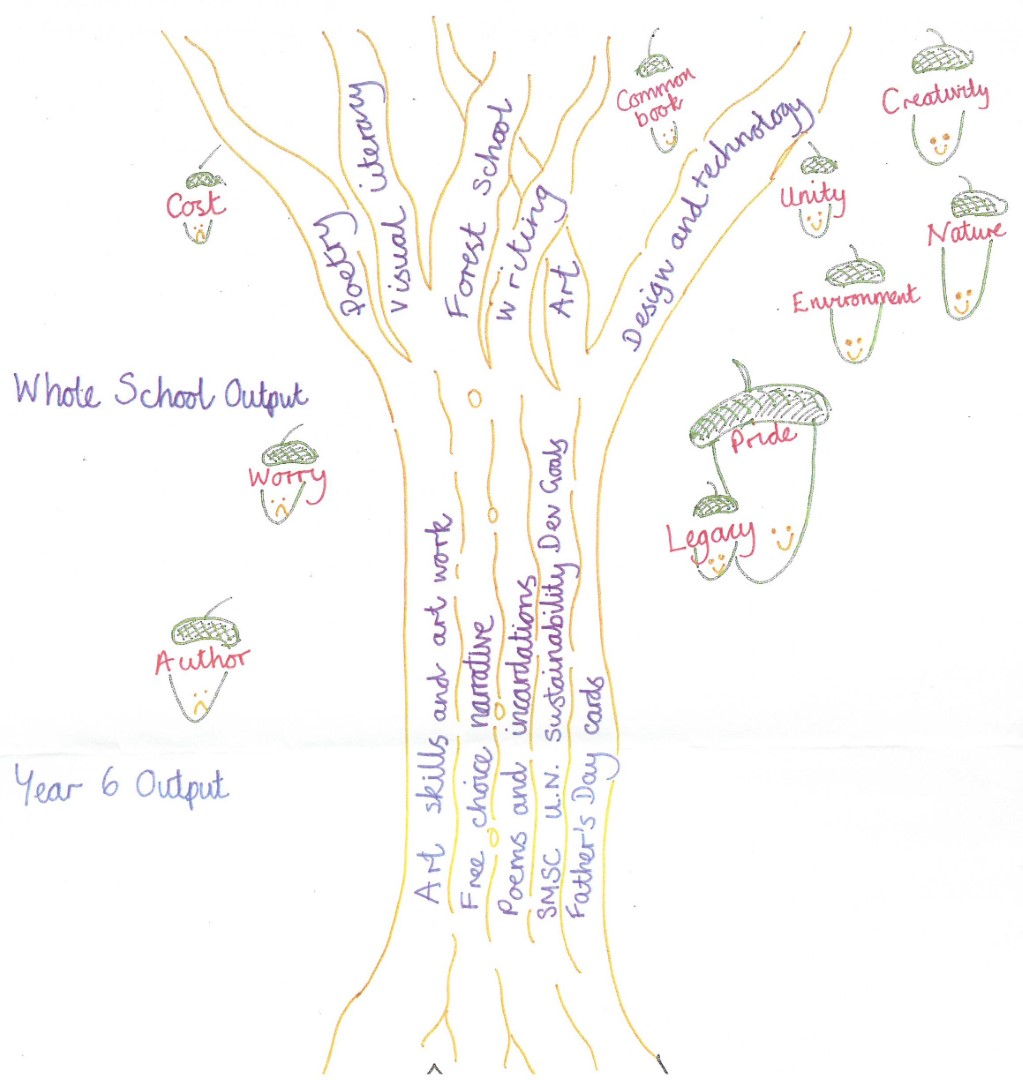 Common
book
Creativity
Cost
Unity
Nature
Environment
Poetry
Visual literacy
Forest School
Writing
Art
Design and technology
Whole School Output
Pride
Worry
Legacy
Author
Year 6 Output
Art skills and art work
Free choice narrative
Poems and incantations
SMSC U.N. Sustainability Dev Goals
Father's Day cards